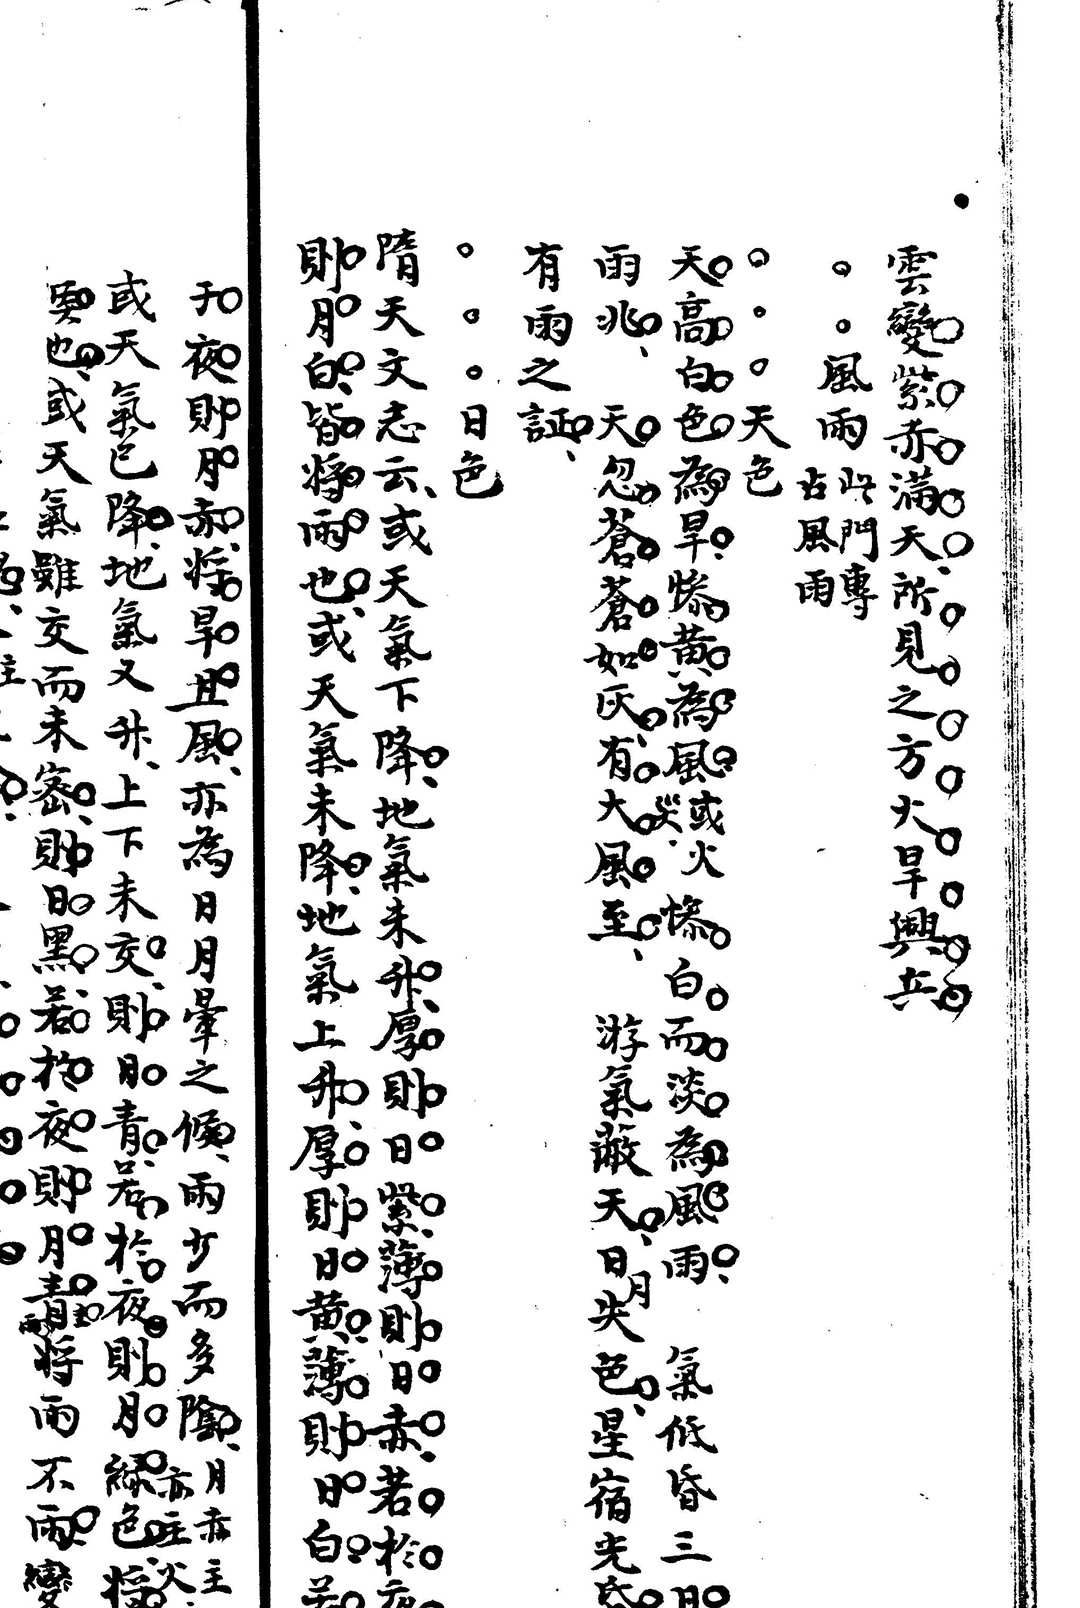 雲變紫赤滿天所見之方大旱興兵
風雨
此門專
占風雨
天色
天高白色為旱慘黃為風或火災慘白而淡為風雨 氣低昏三日
雨兆 天忽蒼蒼如灰有大風至 游氣蔽天日月失色星宿光昏
有雨之証
日色
隋天文志云或天氣下降地氣未升厚則日紫薄則日赤若於夜
則月白皆將雨也或天氣未降地氣上升厚則日黃薄則日白若
于夜則月赤將旱且風亦為日月暈之候雨少而多陰月赤主
亦主火
或天氣已降地氣又升上下未交則日青若於夜則月綠色將
也或天氣雖交而未密則日黑若於夜則月青將雨不雨變